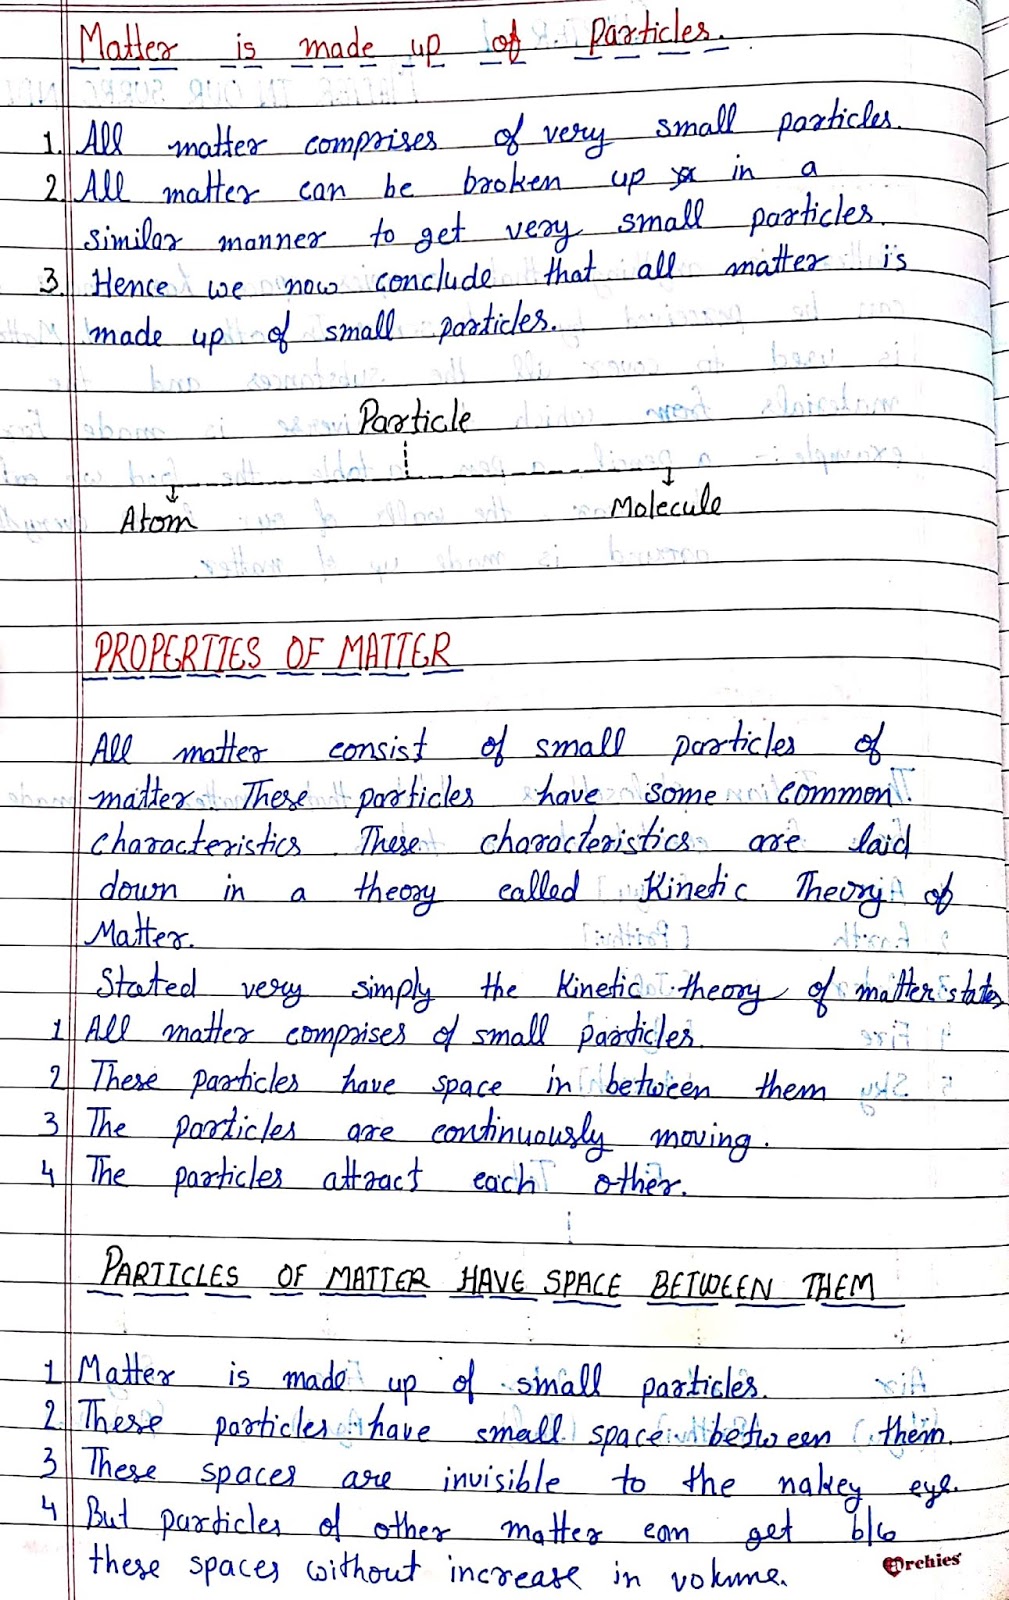 Matter is made up of Particles.
1. All matter comprises of very small particles.
2. All matter can be broken up in a
similar manner to get very small particles.
3. Hence we now conclude that all matter is
made up of small particles.
Particle
Atom Molecule
PROPERTIES OF MATTER
All matter consist of small particles of
matter. These particles have some common
characteristics. These characteristics are laid
down in a theory called Kinetic Theory of
Matter.
Stated very simply the Kinetic theory of matter states
1 All matter comprises of small particles.
2 These particles have space in between them
3 The particles are continuously moving.
4 The particles attract each other.
PARTICLES OF MATTER HAVE SPACE BETWEEN THEM
1 Matter is made up of small particles.
2 These particles have small space between them.
3 These spaces are invisible to the nakey eye.
4 But particles of other matter can get b/w
these spaces without increase in volume.
Archies